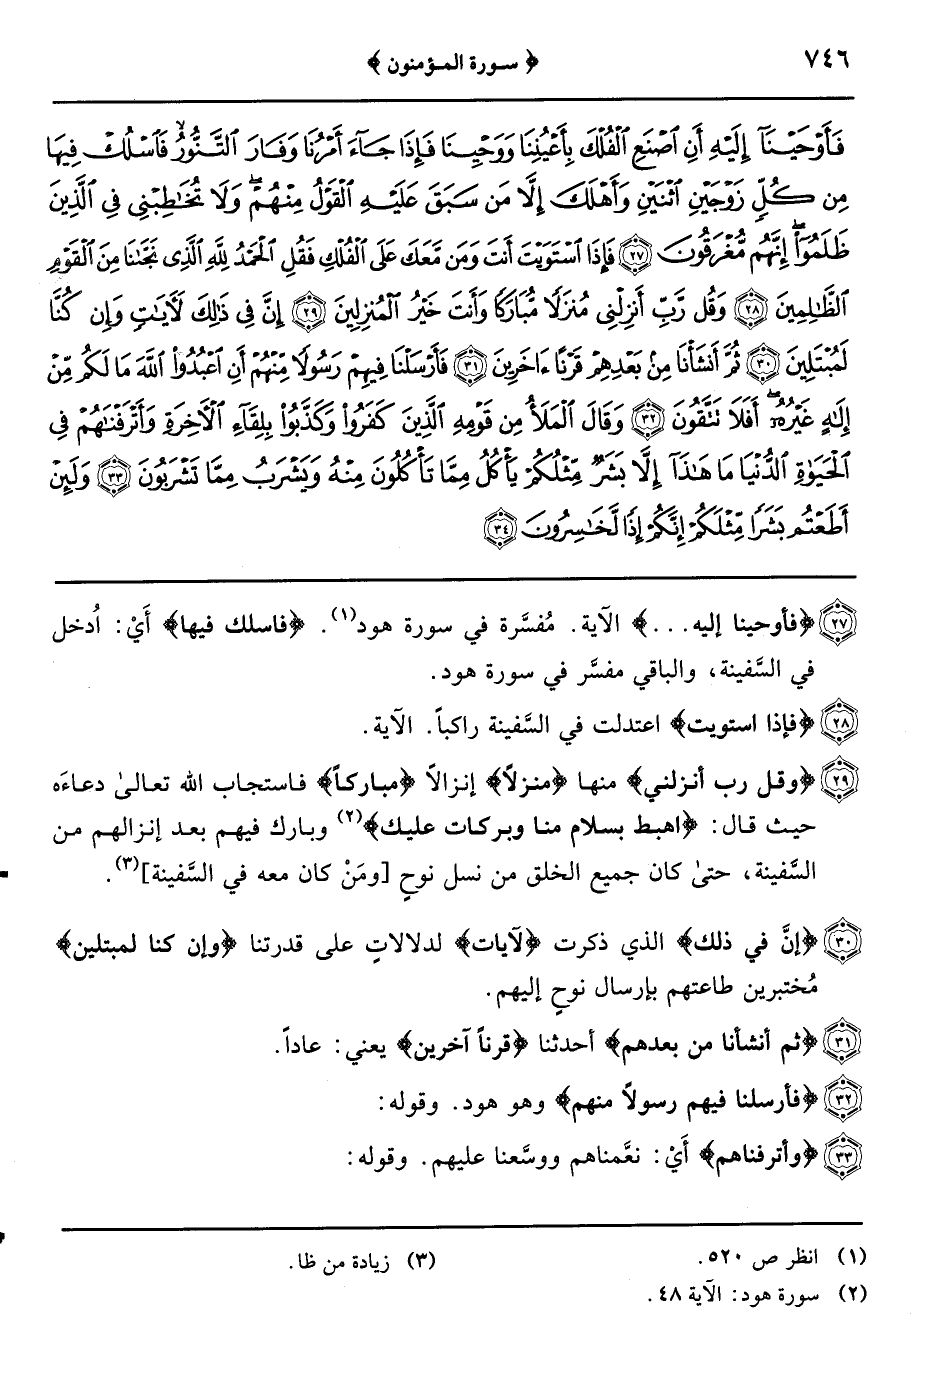 ٧٤٦
﴿ سورة المؤمنون ﴾
فَأَوْحَيْنَآ إِلَيْهِ أَنِ ٱصْنَعِ ٱلْفُلْكَ بِأَعْيُنِنَا وَوَحْيِنَا فَإِذَا جَآءَ أَمْرُنَا وَفَارَ ٱلتَّنُّورُ ۙ فَٱسْلُكْ فِيهَا
مِن كُلٍّ زَوْجَيْنِ ٱثْنَيْنِ وَأَهْلَكَ إِلَّا مَن سَبَقَ عَلَيْهِ ٱلْقَوْلُ مِنْهُمْ ۖ وَلَا تُخَٰطِبْنِى فِى ٱلَّذِينَ
ظَلَمُوٓا۟ ۖ إِنَّهُم مُّغْرَقُونَ ﴿٢٧﴾ فَإِذَا ٱسْتَوَيْتَ أَنتَ وَمَن مَّعَكَ عَلَى ٱلْفُلْكِ فَقُلِ ٱلْحَمْدُ لِلَّهِ ٱلَّذِى نَجَّىٰنَا مِنَ ٱلْقَوْمِ
ٱلظَّٰلِمِينَ ﴿٢٨﴾ وَقُل رَّبِّ أَنزِلْنِى مُنزَلًا مُّبَارَكًا وَأَنتَ خَيْرُ ٱلْمُنزِلِينَ ﴿٢٩﴾ إِنَّ فِى ذَٰلِكَ لَءَايَٰتٍ وَإِن كُنَّا
لَمُبْتَلِينَ ﴿٣٠﴾ ثُمَّ أَنشَأْنَا مِنۢ بَعْدِهِمْ قَرْنًا ءَاخَرِينَ ﴿٣١﴾ فَأَرْسَلْنَا فِيهِمْ رَسُولًا مِّنْهُمْ أَنِ ٱعْبُدُوا۟ ٱللَّهَ مَا لَكُم مِّنْ
إِلَٰهٍ غَيْرُهُۥٓ ۖ أَفَلَا تَتَّقُونَ ﴿٣٢﴾ وَقَالَ ٱلْمَلَأُ مِن قَوْمِهِ ٱلَّذِينَ كَفَرُوا۟ وَكَذَّبُوا۟ بِلِقَآءِ ٱلْءَاخِرَةِ وَأَتْرَفْنَٰهُمْ فِى
ٱلْحَيَوٰةِ ٱلدُّنْيَا مَا هَٰذَآ إِلَّا بَشَرٌ مِّثْلُكُمْ يَأْكُلُ مِمَّا تَأْكُلُونَ مِنْهُ وَيَشْرَبُ مِمَّا تَشْرَبُونَ ﴿٣٣﴾ وَلَئِنْ
أَطَعْتُم بَشَرًا مِّثْلَكُمْ إِنَّكُمْ إِذًا لَّخَٰسِرُونَ ﴿٣٤﴾
﴿٢٧﴾ ﴿فأوحينا إليه...﴾ الآية. مُفسَّرة في سورة هود(١). ﴿فاسلك فيها﴾ أَيْ: أُدخل
في السَّفينة، والباقي مفسَّر في سورة هود.
﴿٢٨﴾ ﴿فإذا استويت﴾ اعتدلت في السَّفينة راكباً. الآية.
﴿٢٩﴾ ﴿وقل رب أنزلني﴾ منها ﴿منزلاً﴾ إنزالاً ﴿مباركاً﴾ فاستجاب الله تعالىٰ دعاءَه
حيث قال: ﴿اهبط بسلام منا وبركات عليك﴾(٢) وبارك فيهم بعد إنزالهم من
السَّفينة، حتىٰ كان جميع الخلق من نسل نوحٍ [ومَنْ كان معه في السَّفينة](٣).
﴿٣٠﴾ ﴿إنَّ في ذلك﴾ الذي ذكرت ﴿لآيات﴾ لدلالاتٍ على قدرتنا ﴿وإن كنا لمبتلين﴾
مُختبرين طاعتهم بإرسال نوحٍ إليهم.
﴿٣١﴾ ﴿ثم أنشأنا من بعدهم﴾ أحدثنا ﴿قرناً آخرين﴾ يعني: عاداً.
﴿٣٢﴾ ﴿فأرسلنا فيهم رسولاً منهم﴾ وهو هود. وقوله:
﴿٣٣﴾ ﴿وأترفناهم﴾ أَيْ: نعَّمناهم ووسَّعنا عليهم. وقوله:
(١) انظر ص ٥٢٠.
(٢) سورة هود: الآية ٤٨.
(٣) زيادة من ظا.